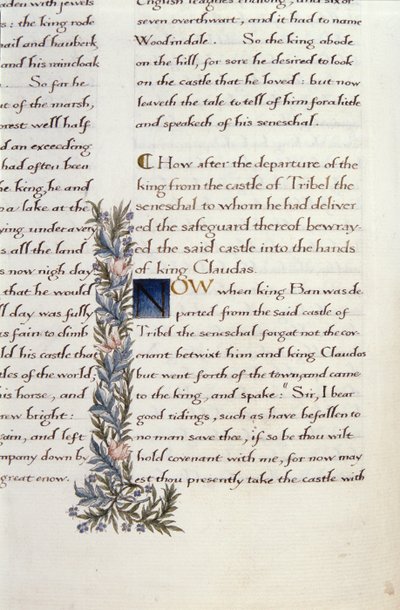 aden with jewels
s: the king rode
nail and hauberk,
his raincloak
So far he
ut of the marsh,
orest well half
d an exceeding
had often been
he king, he and
o a lake at the
ying under a very
s all the land
s now nigh day
that he would
ll day was fully
as fain to climb
old his castle that
tles of the world;
is horse, and
rew bright:
gain, and left
mpany down by
great enow.
English leagues endlong, and six or
seven overthwart, and it had to name
Woodindale. So the king abode
on the hill, for sore he desired to look
on the castle that he loved: but now
leaveth the tale to tell of him for a little
and speaketh of his seneschal.
How after the departure of the
king from the castle of Tribel the
seneschal to whom he had deliver
ed the safeguard thereof bewray-
ed the said castle into the hands
of king Claudas.
NOW when king Ban was de
parted from the said castle of
Tribel the seneschal forgat not the cov-
enant betwixt him and king Claudos
but went forth of the town, and came
to the king, and spake: "Sir, I bear
good tidings, such as have befallen to
no man save thee, if so be thou wilt
hold covenant with me, for now may
est thou presently take the castle with